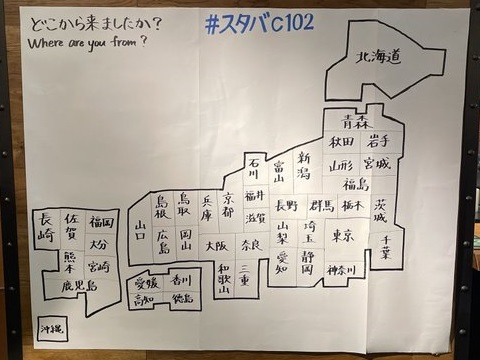 どこから来ましたか?
Where are you from?
#スタバC102
北海道
青森
秋田 岩手
山形 宮城
福島
石川 富山 新潟
福井
長野 群馬 栃木 茨城
滋賀
京都
兵庫
鳥取
島根
山口
広島 岡山
大阪 奈良
山梨 埼玉 東京
千葉
愛知 静岡 神奈川
和歌山 三重
愛媛 香川
高知 徳島
長崎 佐賀 福岡
大分
熊本 宮崎
鹿児島
沖縄